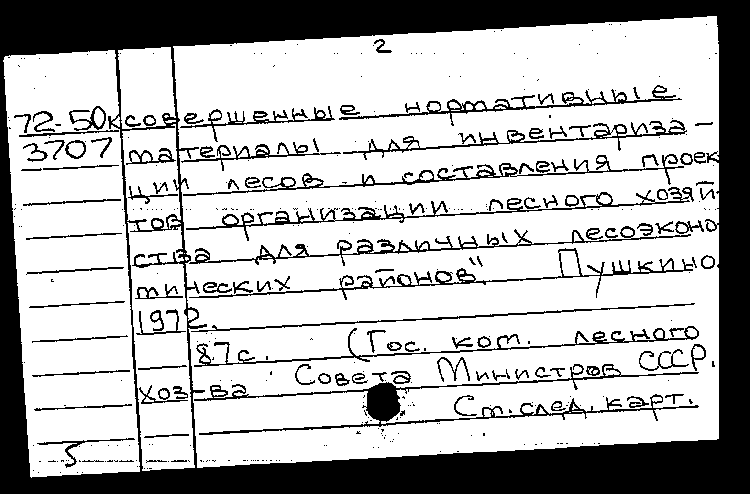 2
72-50к совершенные нормативные
3707 материалы для инвентариза-
ции лесов и составления проек
тов организации лесного хозяй-
ства для различных лесоэконо
мических районов". Пушкино.
1972.
87с. (Гос. ком. лесного
хоз-ва Совета Министров СССР.
См. след. карт.
5